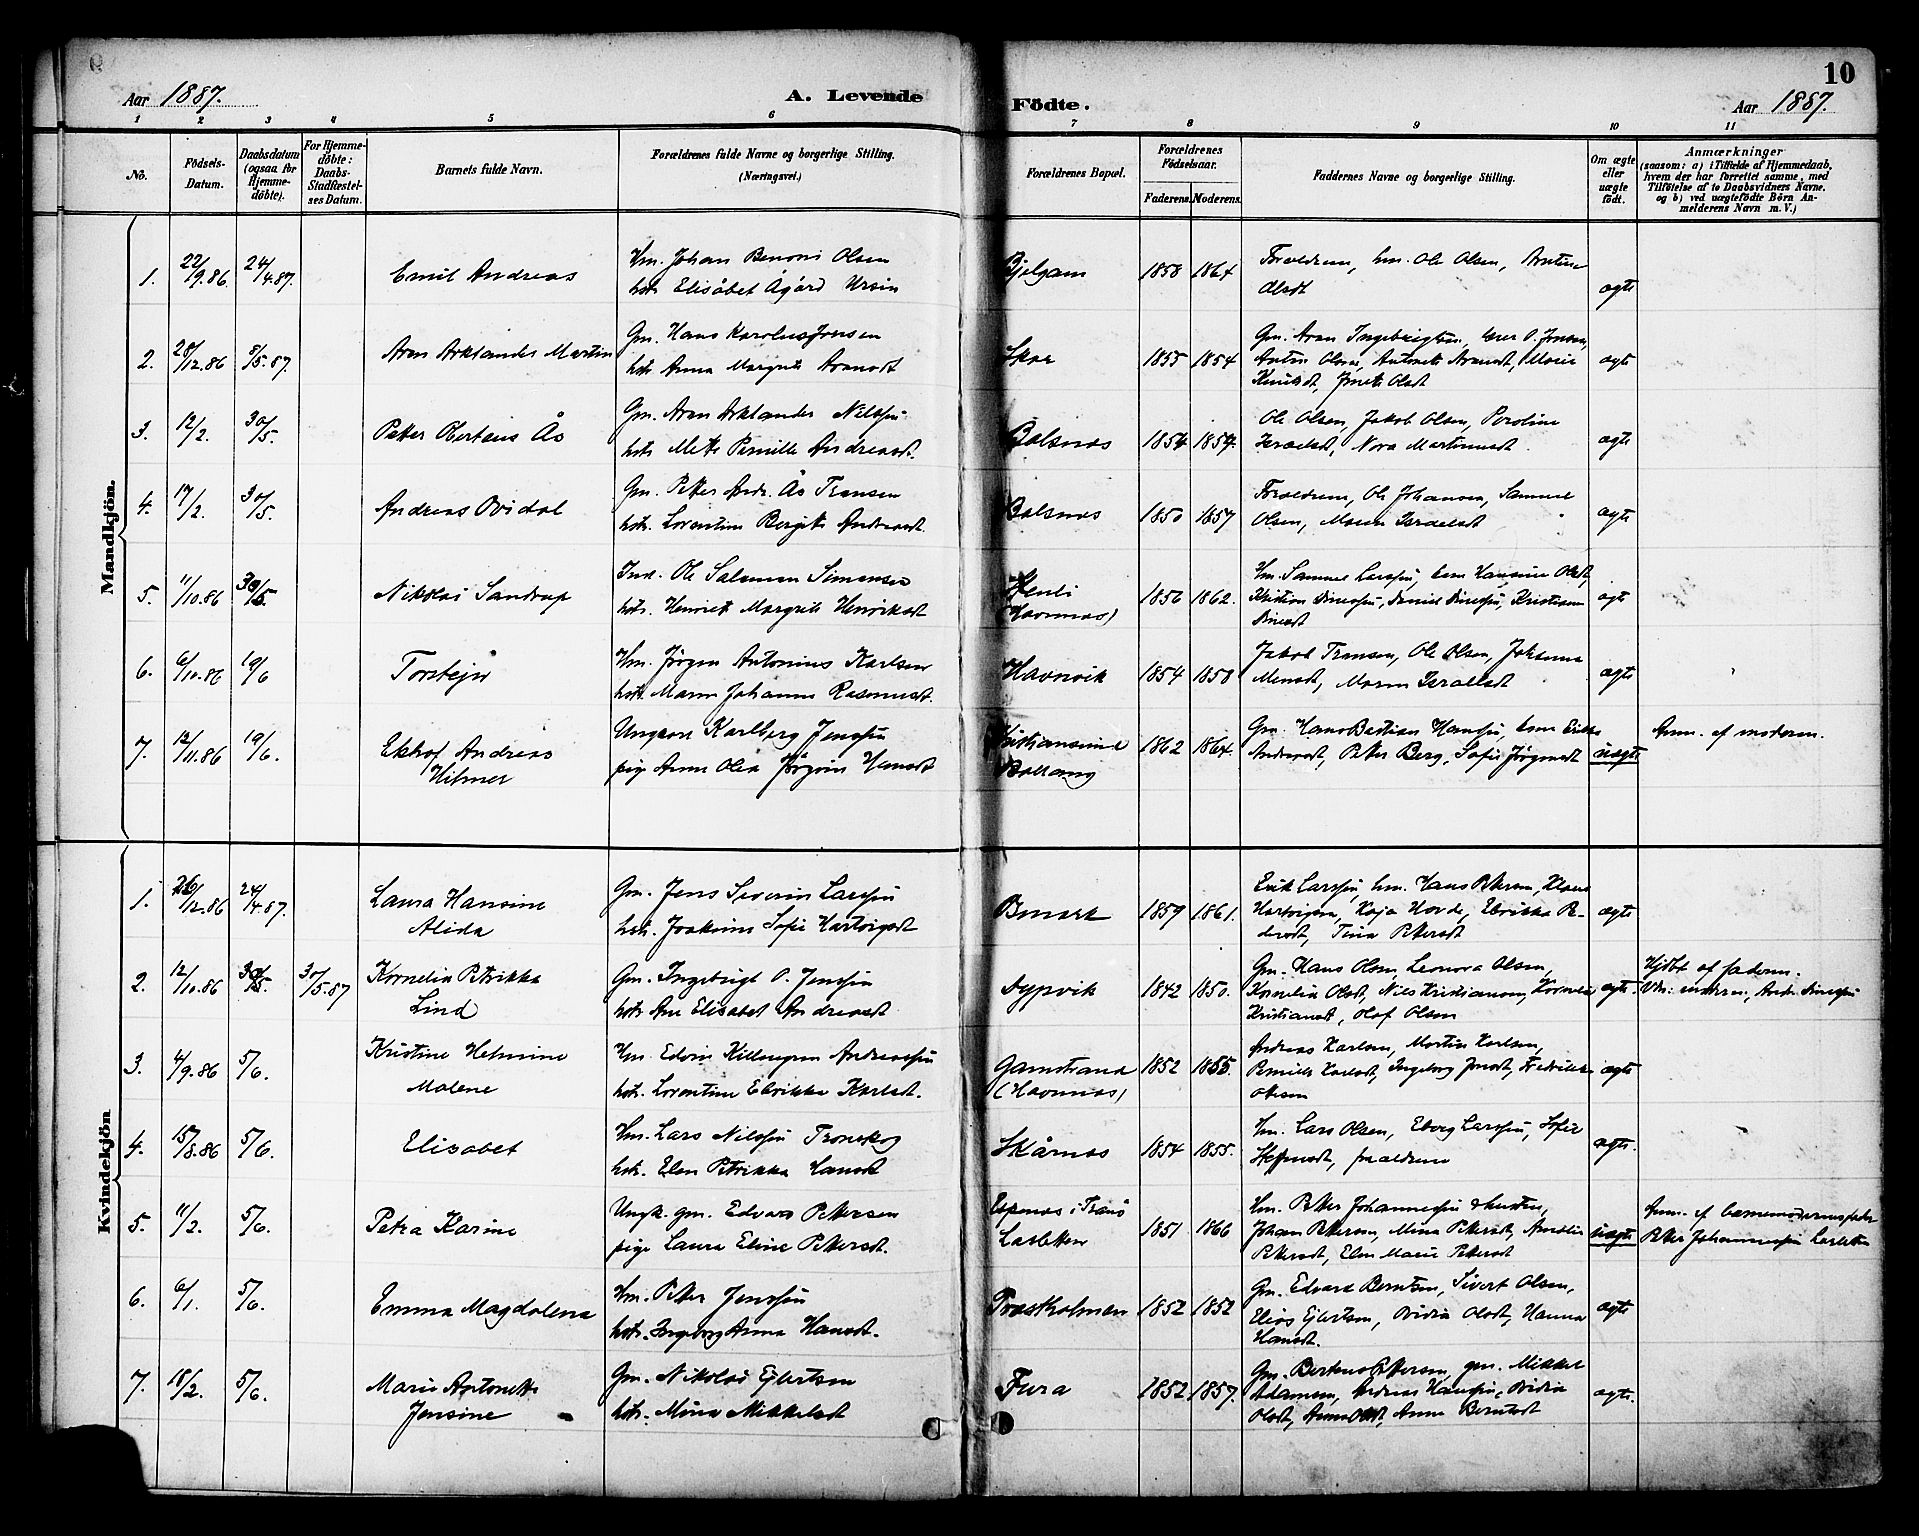 Aar 1887.
A. Levende
Födte.
Aar 1887.
10
1 2 3 4 5 6 7 8 9 10 11
No.
Födsels-
Datum.
Daabsdatum
(ogsaa for
Hjemme-
döbte).
For Hjemme-
döbte:
Daabs-
Stadfæstel-
ses Datum.
Barnets fulde Navn.
Forældrenes fulde Navne og borgerlige Stilling.
(Næringsvei.)
Forældrenes Bopæl.
Forældrenes
Födselsaar.
Faderens. Moderens.
Faddernes Navne og borgerlige Stilling.
Om ægte
eller
uægte
födt.
Anmærkninger
(saasom: a) i Tilfælde af Hjemmedaab,
hvem der har forrettet samme, med
Tilföielse af to Daabsvidners Navne,
og b) ved uægtefödte Börn An-
melderens Navn m. V.)
Mandkjön.
1. 22/9.86 24/4.87. Emil Andreas
Hm. Johan Benoni Olsen
hstr. Elisabet Ågård Ursin
1858 1864
Forældrene, hm. Ole Olsen,
Olsdt
ægte
2. 28/12.86 8/5.87. Aron Arklander Martin
Gm. Hans Karolus Jensen
hstr. Anna Margrete Aronsdt
Skar 1855 1854
Gm. Aron Ingebrigtsen, Jensen,
Olsen, Antonette Aronsdt, Marie
Knudsdt, Olsdt
ægte
3. 12/2. 30/5. Petter Obertaus Ås
Gm. Aron Arklander Nilssen
hstr. Mette Pernille Andreasdt.
Balsnes 1854 1854.
Ole Olsen, Jakob Olsen,
Israelsdt, Nora Martinusdt
ægte
4. 17/2. 30/5. Andreas Ovidal
Gm. Petter Andr. Ås Transen
hstr. Lorentine Bergitte Andreasdt.
Balsnes 1850 1857
Forældrene, Ole Johansen, Samuel
Olsen, Maren Israelsdt
ægte
5. 11/10.86 30/5. Nikolai Sandrup
Ind. Ole Salamon Simonsen
hstr. Henriette Margrete Henriksdt
(Havnnæs) 1856 1862.
Hm. Samuel Larssen, Hansine Olsdt,
Kristian, Daniel, Kristianna
ægte
6. 6/10.86 19/6 Torstejn
Hm. Jørgen Antonius Karlsen
hstr. Maren Johanna Rasmusdt.
Havnvik 1854 1858
Jakob Transen, Ole Olsen, Johanna
Monsdt, Maren Israelsdt
ægte
7. 12/11.86 19/6. Ekhof Andreas
Hilmer
Ungkarl Karlberg Jenssen
pige Anne Olea Jørgine Hansdt
Kristiansund
1862 1864.
Gm. Hans Bastian Hanssen,
Andreasdt, Petter Berg, Sofie Jørgensdt
uægte
Anm. af moderen.
Kvindekjön
1. 26/12.86 24/4.87. Laura Hansine
Alida
Gm. Jens Severin Larssen
hstr. Joakime Sofie Hartvigsdt
1859 1861.
Erik Larssen, hm. Hans Petersen, Klaus
Hartvigsen, Kaja Hovde, Elvrikka Pe-
dersdt, Tina Pettersdt
ægte
2. 12/10.86 30/5. 30/5.87 Kornelia Petrikka
Lind
Gm. Ingebrigt O. Jenssen
hstr. Ane Elisabet Andreasdt
Sypvik 1842 1850.
Gm. Hans Olsen, Leonora Olsen,
Kornelia Olsdt, Nils Kristiansen, Kornelia
Kristiansdt, Olof Olsen
ægte.
Hjdbt af faderen.
3. 4/9.86 5/6. Kristine Helmine
Malene
Hm. Edvin Killengren Andreassen
hstr. Lorentine Elvrikke Karlsdt.
Gamstrand
(Havnnæs) 1852 1855.
Andreas Karlsen, Martin Karlsen,
Pernille Karlsdt, Ingeborg Jensdt, Fredrikke
Olsen
ægte
4. 15/8.86 5/6. Elisabet
Hm. Lars Nilssen Tronskog
hstr. Elen Petrikka Hansdt
Skårnes 1854 1855.
Hm. Lars Olsen, Eberg Larssen, Sofie
Steffensdt, forældrene
ægte.
5. 11/2. 5/6. Petra Karine
Ungk. gm. Edvard Petersen
pige Laura Eline Pettersdt.
Espenes i Tranø
1851 1866
Hm. Petter Johannessen & hustru,
Johan Pettersen, Mina Pettersdt, Amalie
Pettersdt, Elen Marie Pettersdt
uægte
Anm. af barnemoderens fader
Petter Johannessen
6. 6/1. 5/6. Emma Magdalena
Hm. Petter Jenssen
hstr. Ingeborg Anna Hansdt.
Træskholmen 1852 1852
Gm. Edvard Berntsen, Sivert Olsen,
Elias Ejlertsen, Ovidia Olsdt, Hanna
Hansdt.
ægte
7. 18/2. 5/6. Marie Antonette
Jensine
Gm. Nikolai Ejlertsen
hstr. Mina Mikkelsdt
Fura 1852 1857.
Gm. Pettersen, gm. Mikkel
Adamsen, Andreas Hanssen, Ovidia
Olsdt, Olsdt, Anne Berntsdt
ægte.